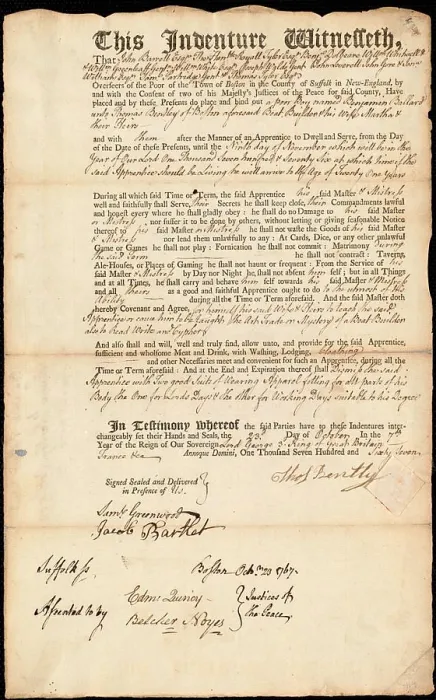 This Indenture Witnesseth,
That John Barrett Esqr Thos Royall Tyler Esqr Benj Dolbeare Willm Whitwell
& Willm Greenleaf Gent Willm White Esqr Joseph Gent John Leverett John Gore & Saml
Esqr Saml Partridge Gent & Thomas Tyler Esqr
Overseers of the Poor of the Town of Boston in the County of Suffolk in New-England, by
and with the Consent of two of His Majesty's Justices of the Peace for said County, Have
placed and by these Presents do place and bind out a poor Boy named Benjamin Bullard
unto Thomas Bentley of Boston aforesaid Boat Builder & his Wife Martha &
their Heirs
and with them after the Manner of an Apprentice to Dwell and Serve, from the Day
of the Date of these Presents, until the Ninth day of November which will be in the
Year of Our Lord One Thousand Seven hundred & Seventy Six at which time if the
said Apprentice should be living he will arrive to the Age of Twenty One Years
During all which said Time or Term, the said Apprentice his said Master & Mistress
well and faithfully shall Serve, their Secrets he shall keep close, their Commandments lawful
and honest every where he shall gladly obey: he shall do no Damage to his said Master
or Mistress, nor suffer it to be done by others, without letting or giving seasonable Notice
thereof to his said Master or Mistress he shall not waste the Goods of his said Master
& Mistress nor lend them unlawfully to any: At Cards, Dice, or any other unlawful
Game or Games he shall not play: Fornication he shall not commit: Matrimony During
the said Term he shall not contract: Taverns,
Ale-Houses, or Places of Gaming he shall not haunt or frequent: From the Service of his
said Master & Mistress by Day nor Night he shall not absent himself; but in all Things
and at all Times, he shall carry and behave himself towards his said Master & Mistress
and all theirs as a good and faithful Apprentice ought to do to the utmost of his
Ability during all the Time or Term aforesaid. And the said Master doth
hereby Covenant and Agree, for himself his said Wife & Heirs to teach the said
Apprentice or cause him to be taught the Art Trade or Mystery of a Boat Builder
also to read Write and Cypher
And also shall and will, well and truly find, allow unto, and provide for the said Apprentice,
sufficient and wholsome Meat and Drink, with Washing, Lodging, Cloathing
and other Necessaries meet and convenient for such an Apprentice, during all the
Time or Term aforesaid: And at the End and Expiration thereof shall Dismiss the said
Apprentice with Two good Suits of Wearing Apparel fitting for all parts of his
Body the One for Lords Days & the other for Working Days suitable to his Degree
In Testimony whereof the said Parties have to these Indentures inter-
changeably set their Hands and Seals, the 23d Day of October In the 7th
Year of the Reign of Our Sovereign Lord George 3d King of Great Britain
France &ca Annoque Domini, One Thousand Seven Hundred and Sixty Seven
Thos Bently
Signed Sealed and Delivered
in Presence of Us.
Saml Greenwood
Jacob Bartlet
Suffolk ss. Boston Oct 23 1767
Assented to by
Edm Quincy
Belcher Noyes
Justices of
the Peace